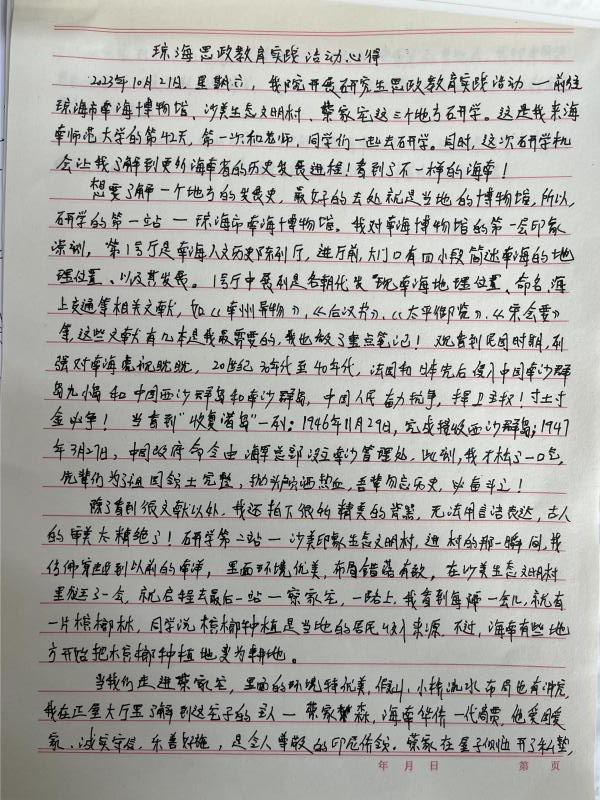 琼海思政教育实践活动心得
2023年10月21日，星期六，我院开展研究生思政教育实践活动—前往
琼海市南海博物馆、沙美生态文明村、蔡家宅这三个地方研学。这是我来海
南师范大学的第42天，第一次和老师，同学们一起去研学。同时，这次研学机
会让我了解到更多海南省的历史发展进程！看到了不一样的海南！
想要了解一个地方的发展史，最好的去处就是当地的博物馆，所以，
研学的第一站—琼海市南海博物馆。我对南海博物馆的第一层印象
深刻，第1号厅是南海人文历史陈列厅，进厅前，大门口有四小段简述南海的地
理位置、以及其发展。1号厅中展列是各朝代发现南海地理位置、命名、海
上交通等相关文献，如《南州异物》、《后汉书》、《太平御览》、《宋会要》
等，这些文献有几本是我最需要的，我也做了重点笔记！观看到民国时期，列
强对南海虎视眈眈，20世纪30年代至40年代，法国和日本先后侵入中国南沙群
岛九小岛和中国西沙群岛和南沙群岛，中国人民奋力抗争，捍卫主权！寸土寸
金必争！当看到"收复诸岛"一列；1946年11月29日，完成接收西沙群岛；1947
年3月27日，中国政府命令由海军总部设立南沙管理处，此刻，我才松了一口气，
先辈们为了祖国领土完整，抛头颅洒热血，吾辈勿忘历史，必奋斗之！
除了看到很文献以外，我还拍下很多精美的背景，无法用言语表达，古人
的审美太精绝了！研学第二站—沙美印象生态文明村，进村的那一瞬间，我
仿佛穿越到以前的南洋，里面环境优美，布局错落有致，在沙美生态文明村
里做了一会，就启程去最后一站—蔡家宅，一路上，我看到每隔一会儿，就有
一片槟榔林，同学说槟榔种植是当地的居民收入来源。不过，海南有些地
方开始把槟榔种植地变为耕地。
当我们走进蔡家宅，里面的环境特优美，假山，小桥流水布局也有讲究，
我在正屋大厅里了解到这宅子的主人—蔡家森，海南华侨一代商贾，他爱国爱
家、诚实守信、乐善好施，是令人尊敬的印尼侨领。蔡家在屋子侧边开了私塾，
年 月 日 第 页